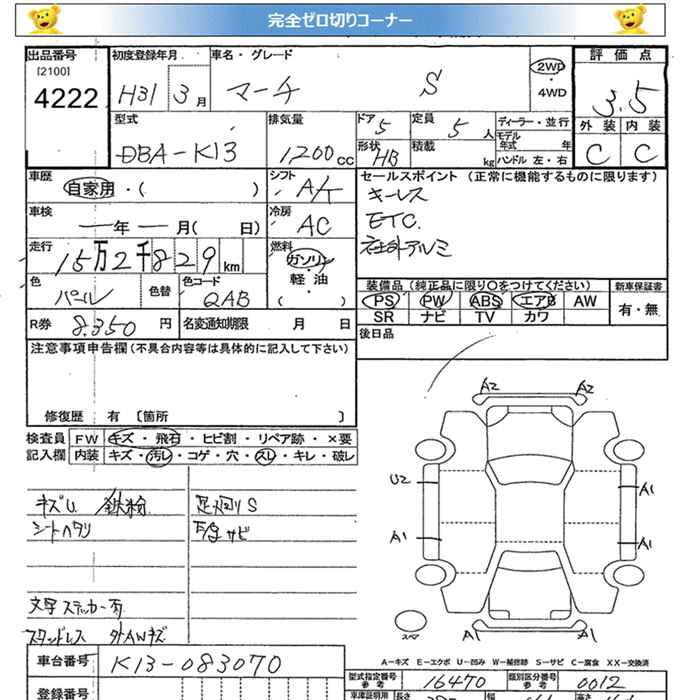 完全ゼロ切りコーナー
出品番号 初度登録年月 車名・グレード 評価点
[2100]
4222 H31 3月 マーチ S 2WD・4WD 3.5
外装 内装
C C
型式 排気量 ドア 定員 ディーラー・並行
DBA-K13 1200cc 5 5人 モデル年式 年
形状 積載 ハンドル 左・右
HB kg
車歴 シフト セールスポイント (正常に機能するものに限ります)
自家用・( ) A/T キーレス
車検 冷房 ETC.
年 月( 日) AC 社外アルミ
走行 燃料
15万2千829km ガソリン・軽油( )
色 色替 色コード 装備品 (純正品に限り〇をつけてください) 新車保証書
パール QAB PS PW ABS エアB AW 有・無
SR ナビ TV カワ
R券 8,350円 名変通知期限 月 日 後日品
注意事項申告欄(不具合内容等は具体的に記入して下さい)
修復歴 有 [箇所 ]
検査員 FW キズ・飛石・ヒビ割・リペア跡・×要
記入欄 内装 キズ・汚レ・コゲ・穴・スレ・キレ・破レ
キズU 鉄粉 足廻りS
シートヘタリ 下廻サビ
文字ステッカー有
スタンドレス 外AWキズ
A2 A2
U2 A1
A1 A1
A1 A1
スペア
A-キズ E-エクボ U-凹み W-補修跡 S-サビ C-腐食 XX-交換済
車台番号 K13-083070
型式指定番号 参考 16470 類別区分番号 参考 0012
登録番号 車庫証明用 長さ 幅 高さ